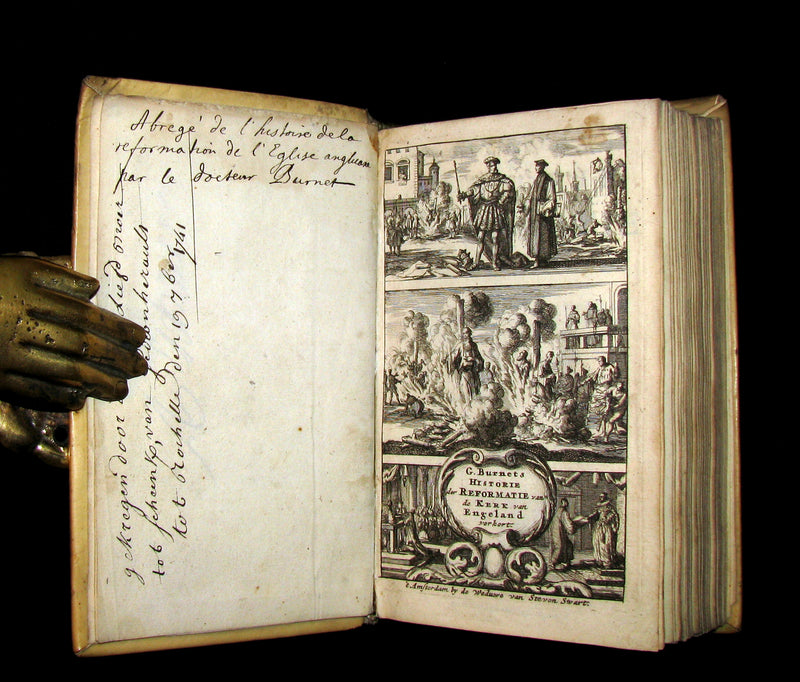 Abregé de l'histoire de la
reformation de l'Eglise anglicane
par le docteur Burnet
gekregen door
tot schenk, van
tot Rochelle den 19 7ber 1741
G. Burnets
HISTORIE
der REFORMATIE van
de KERK van
Engeland
verkort.
t'Amsterdam by de Weduwe van Steven Swart.